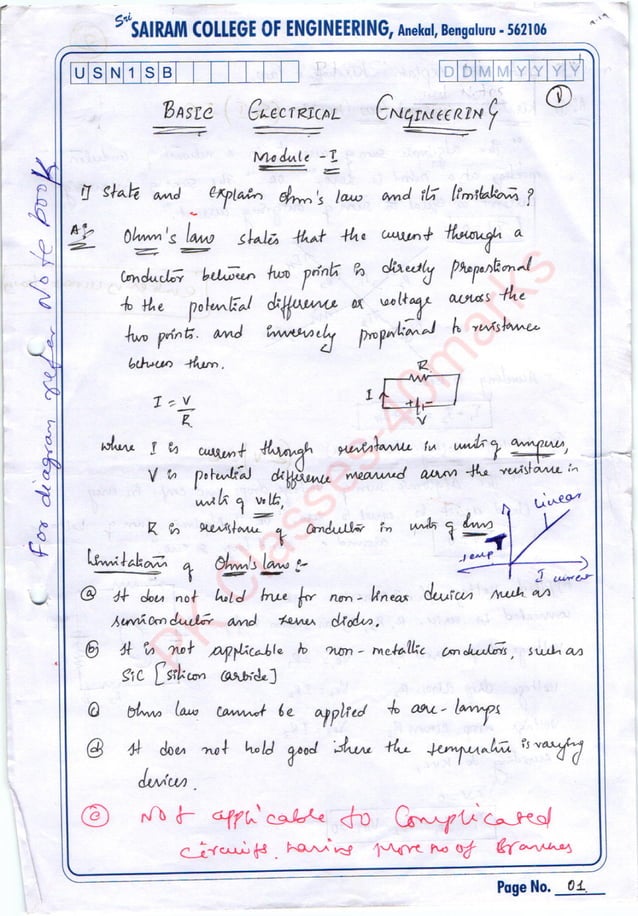 Sri SAIRAM COLLEGE OF ENGINEERING, Anekal, Bengaluru - 562106
U S N 1 S B D D M M Y Y Y Y
1
BASIC ELECTRICAL ENGINEERING
Module - I
1) State and explain ohm's law and its limitations?
A:- Ohm's law states that the current through a
conductor between two points is directly proportional
to the potential difference or voltage across the
two points. and inversely proportional to resistance
between them.
I = V/R
R
I
V
where I is current through resistance in units of amperes,
V is potential difference measured across the resistance in
units of volts,
R is resistance of conductor in units of ohms
Linear
Temp
I current
Limitations of Ohm's law :-
(a) It does not hold true for non-linear devices such as
semiconductor and zener diodes.
(b) It is not applicable to non-metallic conductors, such as
SiC [silicon carbide]
(c) Ohms law cannot be applied to arc-lamps
(d) It does not hold good where the temperature is varying
devices.
(e) Not applicable to Complicated
circuits having more no of Branches
Page No. 01
For diagram refer Note book
PK Classes 40 marks